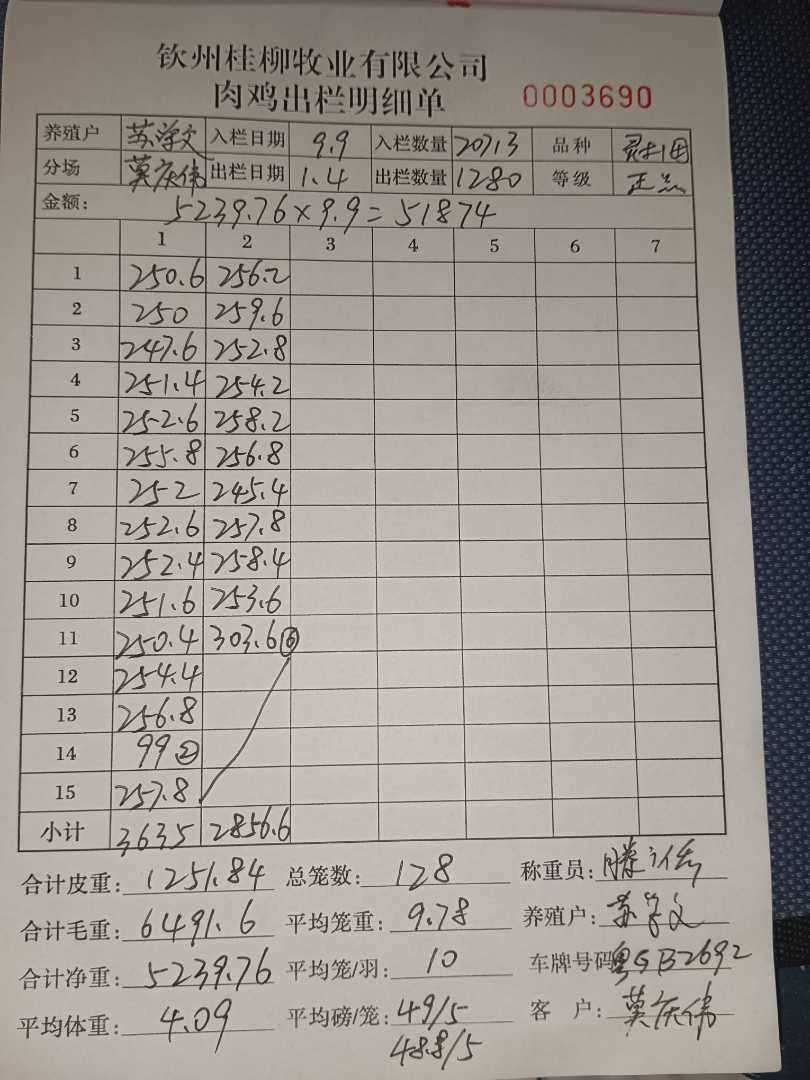 钦州桂柳牧业有限公司
肉鸡出栏明细单 0003690
养殖户 苏学文 入栏日期 9.9 入栏数量 20713 品种
分场 莫庆伟 出栏日期 1.4 出栏数量 1280 等级 正品
金额: 5239.76×9.9=51874
1 2 3 4 5 6 7
1 250.6 256.2
2 250 259.6
3 247.6 252.8
4 251.4 254.2
5 252.6 258.2
6 255.8 256.8
7 252 245.4
8 252.6 257.8
9 252.4 258.4
10 251.6 253.6
11 250.4 303.6⑥
12 254.4
13 256.8
14 99②
15 257.8
小计 3635 2856.6
合计皮重: 1251.84 总笼数: 128 称重员:
合计毛重: 6491.6 平均笼重: 9.78 养殖户: 苏学文
合计净重: 5239.76 平均笼/羽: 10 车牌号码 粤GB2692
平均体重: 4.09 平均磅/笼: 49/5 客 户: 莫庆伟
48.8/5